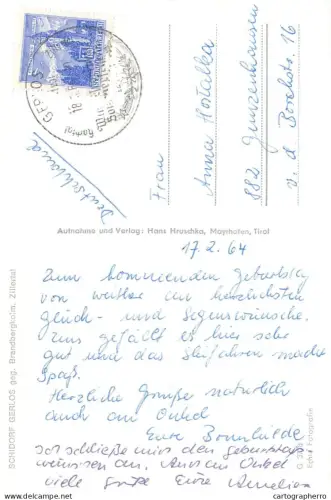 GERLOS
Deutschland
Frau
Anna Hostalka
882 Gunzenhausen
v. d. Bachstr. 16
Aufnahme und Verlag: Hans Hruschka, Mayrhofen, Tirol
SCHIDORF GERLOS geg. Brandbergkolm, Zillertal
17.2.64
Zum kommenden Geburtstag
von weither die herzlichsten
Glück- und Segenswünsche.
Uns gefällt es hier sehr
gut und das Skifahren macht
Spaß.
Herzliche Grüße natürlich
auch an Onkel
Eure Brunhilde
Ich schließe mich den Geburtstags
wünschen an. Auch an Onkel
viele Grüße Eure
Echte Fotografie
cartographer